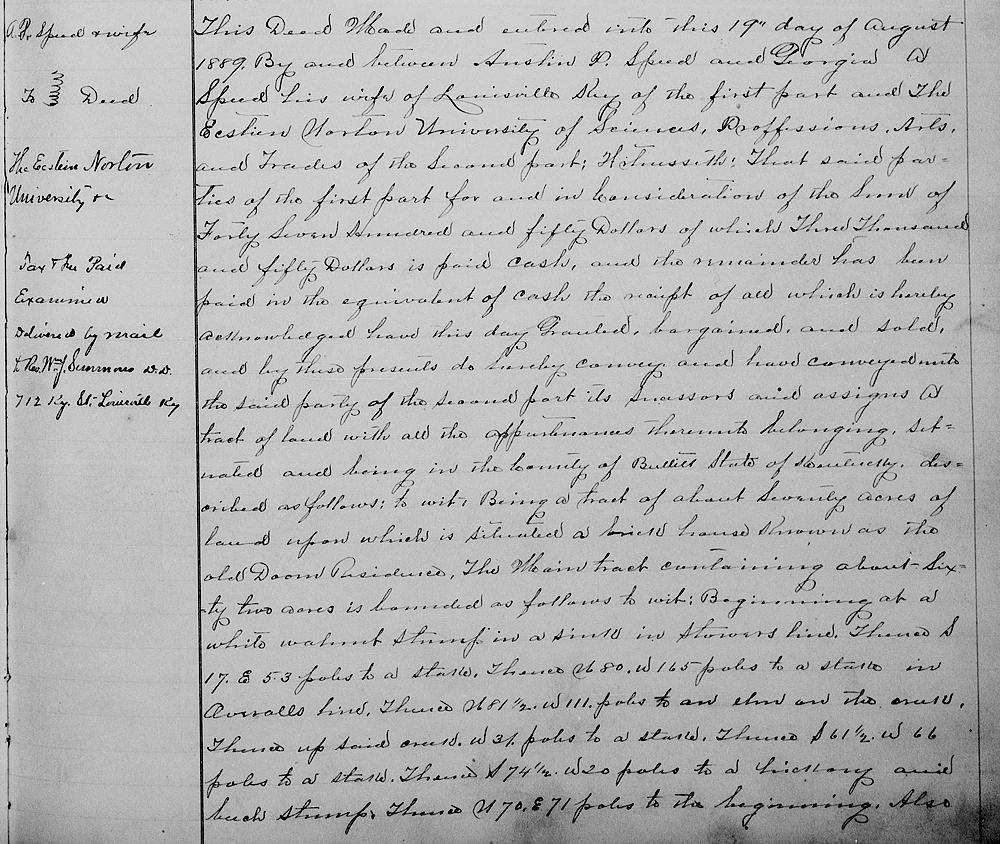 A. P. Speed & wife
To Deed
The Ecstien Norton
University &c
Tax & Fee Paid
Examined
Delivered by mail
to Rev. Wm J. Simmons D.D.
712 Ky. St. Louisville Ky
This Deed Made and entered into this 19" day of August
1889. By and between Austin P. Speed and Georgia A
Speed his wife of Louisville Ky of the first part and The
Ecstien Norton University of Sciences, Proffessions, Arts,
and Trades of the Second part; Witnesseth: That said par=
ties of the first part for and in Consideration of the Sum of
Forty Seven Hundred and fifty Dollars of which Three Thousand
and fifty Dollars is paid cash, and the remainder has been
paid in the equivalent of cash the reciept of all which is hereby
acknowledged have this day Granted, bargained, and sold,
and by these presents do hereby convey and have conveyed unto
the said party of the second part its sucessors and assigns A
tract of land with all the appurtenances thereunto belonging, sit=
uated and being in the County of Bullitt State of Kentucky, des=
cribed as follows; to wit: Being a tract of about Seventy acres of
land upon which is situated a brick house Known as the
old Doom Residence, The Main tract containing about Six=
ty two acres is bounded as follows to wit; Beginning at a
white walnut stump in a sink in Stowers line. Thence S
17. E 53 poles to a stake. Thence N 80. W 165 poles to a stake in
Overalls line. Thence N 81 1/2. W 111. poles to an elm on the creek.
Thence up said creek. W 31. poles to a stake. Thence S 61 1/2. W 66
poles to a stake. Thence S 74 1/2. W 20 poles to a hickory and
beech stump. Thence N 70. E 71 poles to the beginning. Also